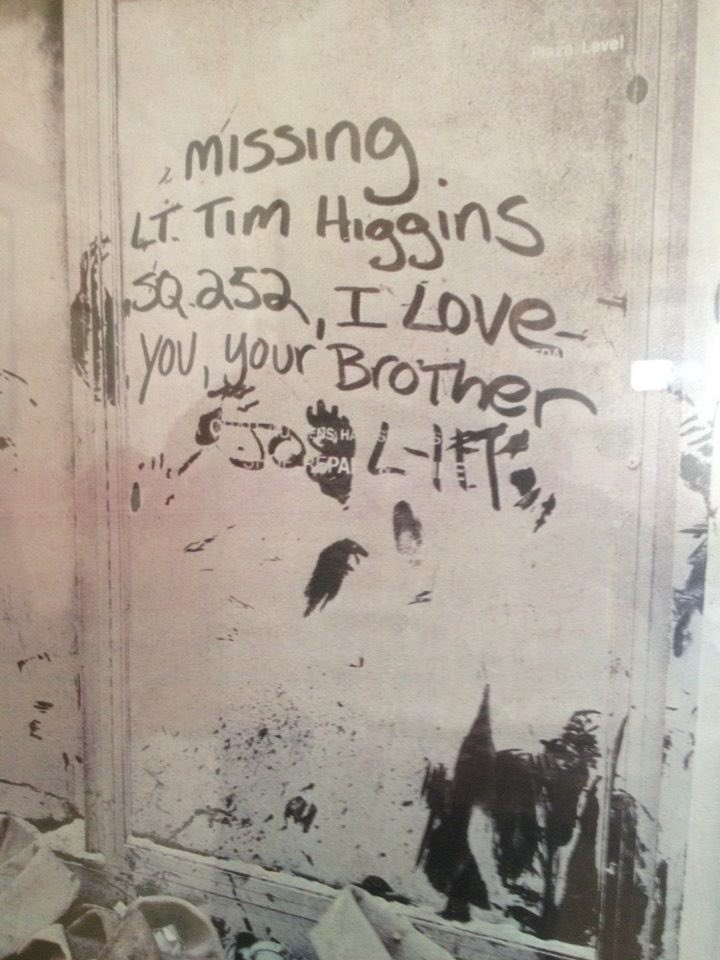 Plaza Level
missing
LT. Tim Higgins
SQ.252, I Love
you, your Brother
JOE L-111
REPAI